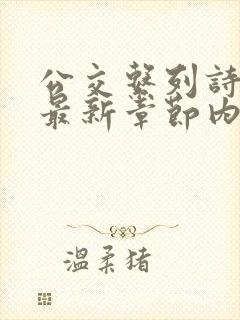 公交繫列詩
最新章節內
溫柔猪